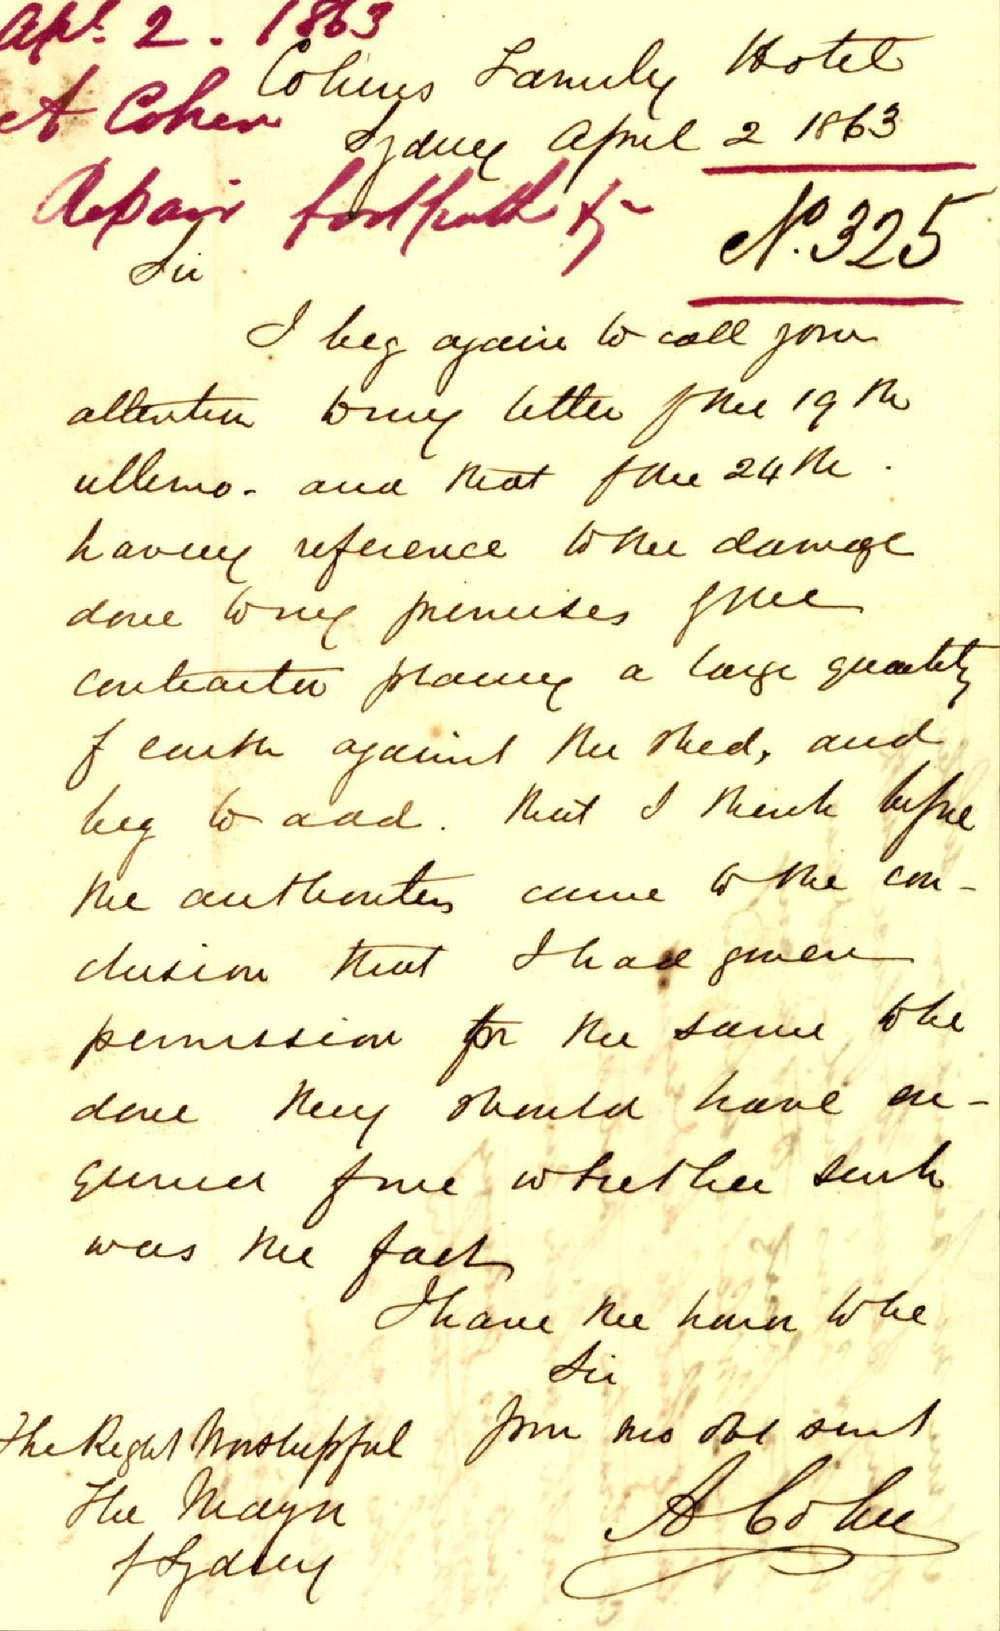 Apl. 2. 1863
A Cohen
Repair footpath &c
Cohens Family Hotel
Sydney April 2 1863
No. 325
Sir
I beg again to call your
attention to my letter of the 19th
ultimo - and that of the 24th.
having reference to the damage
done to my premises of the
contractor placing a large quantity
of earth against the shed, and
beg to add. that I think before
the authorities came to the con-
clusion that I had given
permission for the same to be
done they should have en-
quired of me whether such
was the fact
I have the honor to be
Sir
your mo obt servt
A Cohen
The Right Worshipful
The Mayor
of Sydney